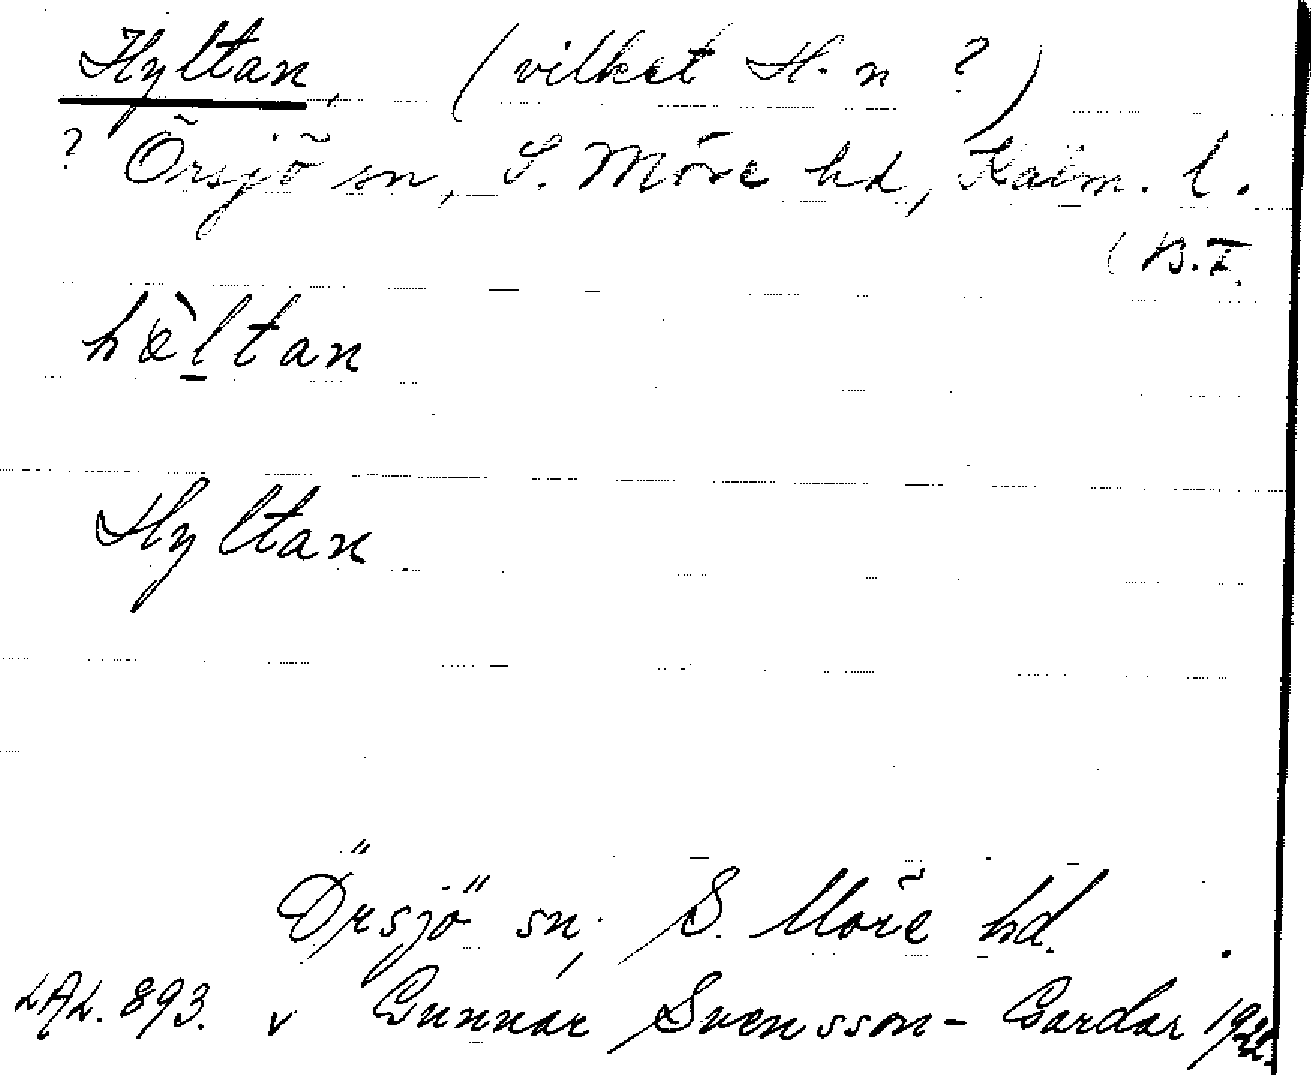 Hyltan, (vilket H. n ?)
? Örsjö sn, S. Möre hd, Kalm. l.
(B.I.
hæ̀ltan
Hyltan
Örsjö sn, S. Möre hd.
LAL. 893. v Gunnar Svensson-Gardar